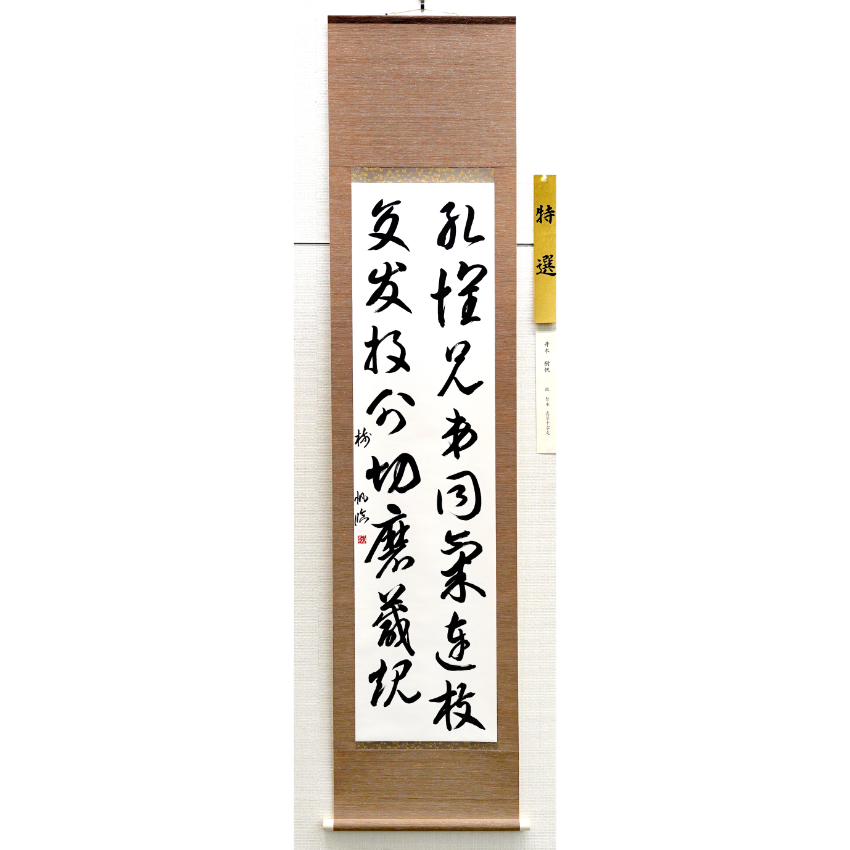 孔懐兄弟同氣連枝
交友投分切磨箴規
樹帆臨
特選